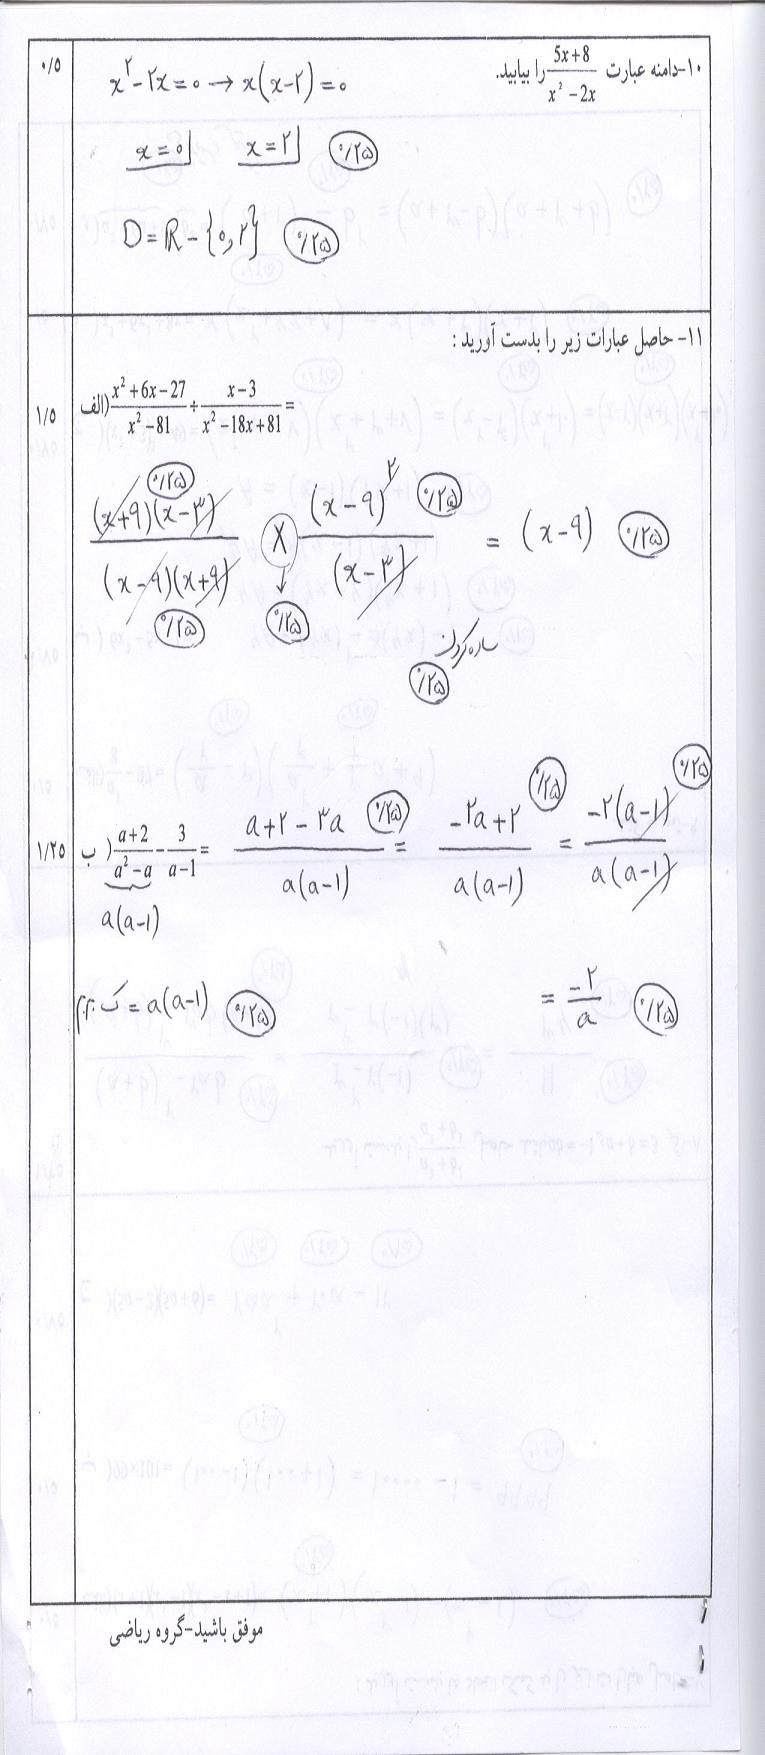 ۱۰-دامنه عبارت (5x+8)/(x²-2x) را بیابید. ۰/۵
x²-۲x=۰ → x(x-۲)=۰
x=۰ x=۲ ۰/۲۵
D=R-{۰,۲} ۰/۲۵
۱۱- حاصل عبارات زیر را بدست آورید :
۱/۵ الف) (x²+6x-27)/(x²-81) ÷ (x-3)/(x²-18x+81) =
۰/۲۵ (x+۹)(x-۳)/(x-۹)(x+۹) ۰/۲۵ × ۰/۲۵ (x-۹)²/(x-۳) ۰/۲۵ = (x-۹) ۰/۲۵
ساده کردن
۰/۲۵
۱/۲۵ ب) (a+2)/(a²-a) - 3/(a-1) = (a+۲-۳a)/a(a-1) ۰/۲۵ = (-۲a+۲)/a(a-1) ۰/۲۵ = -۲(a-1)/a(a-1) ۰/۲۵
a(a-1)
ک.م.م = a(a-1) ۰/۲۵ = -۲/a ۰/۲۵
موفق باشید-گروه ریاضی